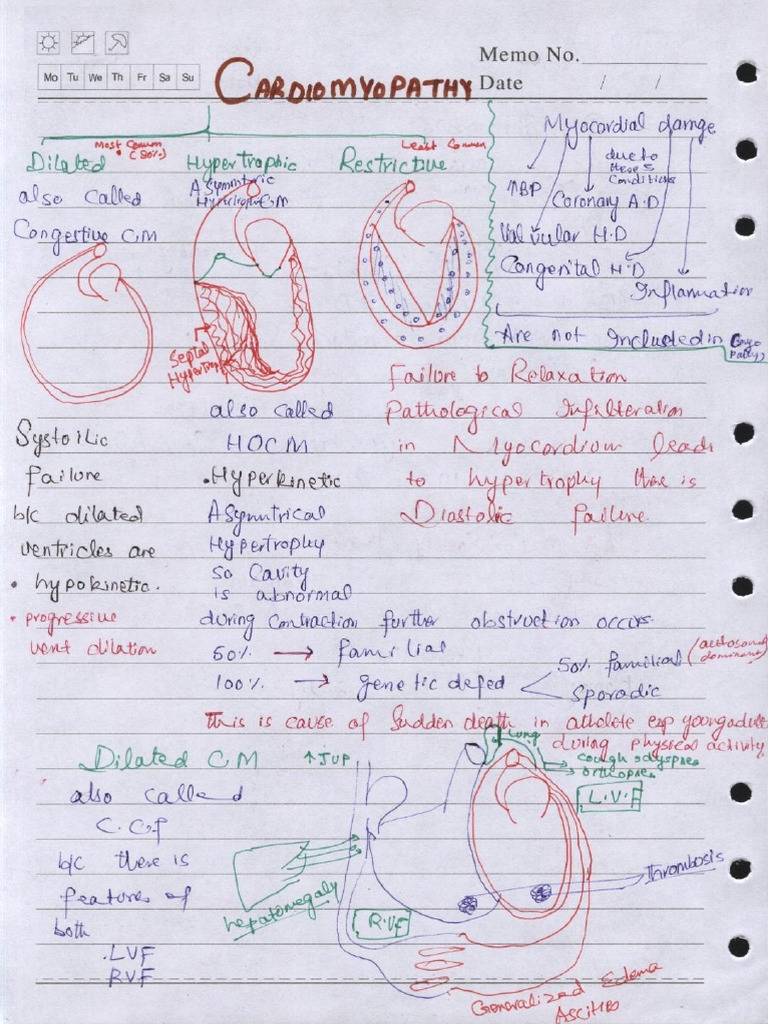 Memo No.
Mo Tu We Th Fr Sa Su
Date / /
CARDIOMYOPATHY
Most Common
(80%)
Dilated
also called
Congestive C.M
Hypertrophic
Asymmteric
Least Common
Restrictive
Myocardial damge
due to
these 5
Conditions
↑BP
Coronary A.D
Valvular H.D
Congenital H.D
Inflamation
Are not Included in
Septal
Systolic
failure
b/c dilated
ventricles are
• hypokinetic.
• progressive
vent dilation
also called
HOCM
• Hyperkinetic
Asymmtrical
Hypertrophy
so Cavity
is abnormal
during contraction further obstruction occurs.
50% → familial
100% → genetic defed
50% familial (autosomal
dominant)
sporadic
Failure to Relaxation
Pathological Infilteration
in Myocardium leads
to hypertrophy there is
Diastolic failure.
This is cause of Sudden death in athelete esp young adult
during physical activity
Dilated CM
also called
C.C.f
b/c there is
features of
both
.LVF
RVF
↑JVP
Lung
cough & dyspnea
orthopnea
L.V.F
Thrombosis
hepatomegaly
R.V.F
Generalized Edema
Ascites